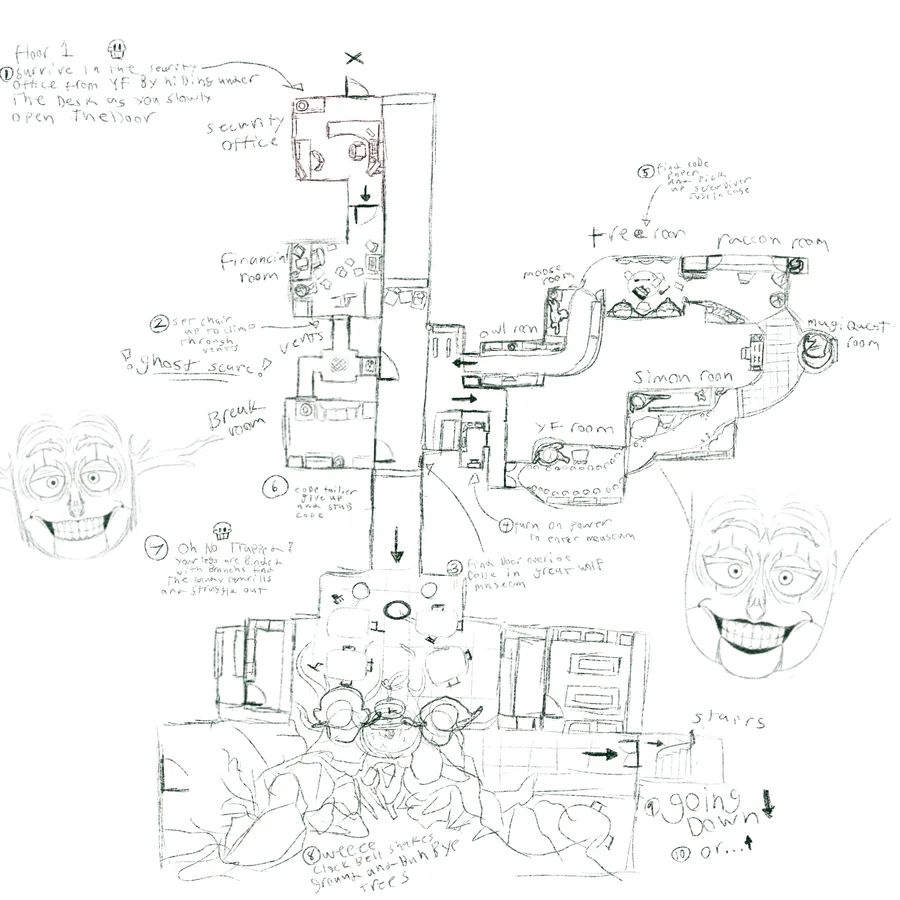 floor 1
① survive in the security
office from YF By hiDing under
The Desk as you slowly
open TheDoor
X
security
office
Financial
room
② set chair
up to climp
through
vents
vents
! ghost scare !
Break
room
⑤ find code
paper
and pick
up screwdriver
tree room
raccoon room
moose
room
owl room
magiQuest
room
Simon room
YF room
④ turn on power
to enter meuseum
③ find Door override
Code in great wolf
museum
⑥ code failier
give up
and stab
code
⑦ Oh No Trapped!
your legs are Binded
with Branches find
and struggle out
stairs
⑨ going
Down
⑩ or...
⑧ weeee
Clock Bell shakes
ground and Buh Bye
Trees